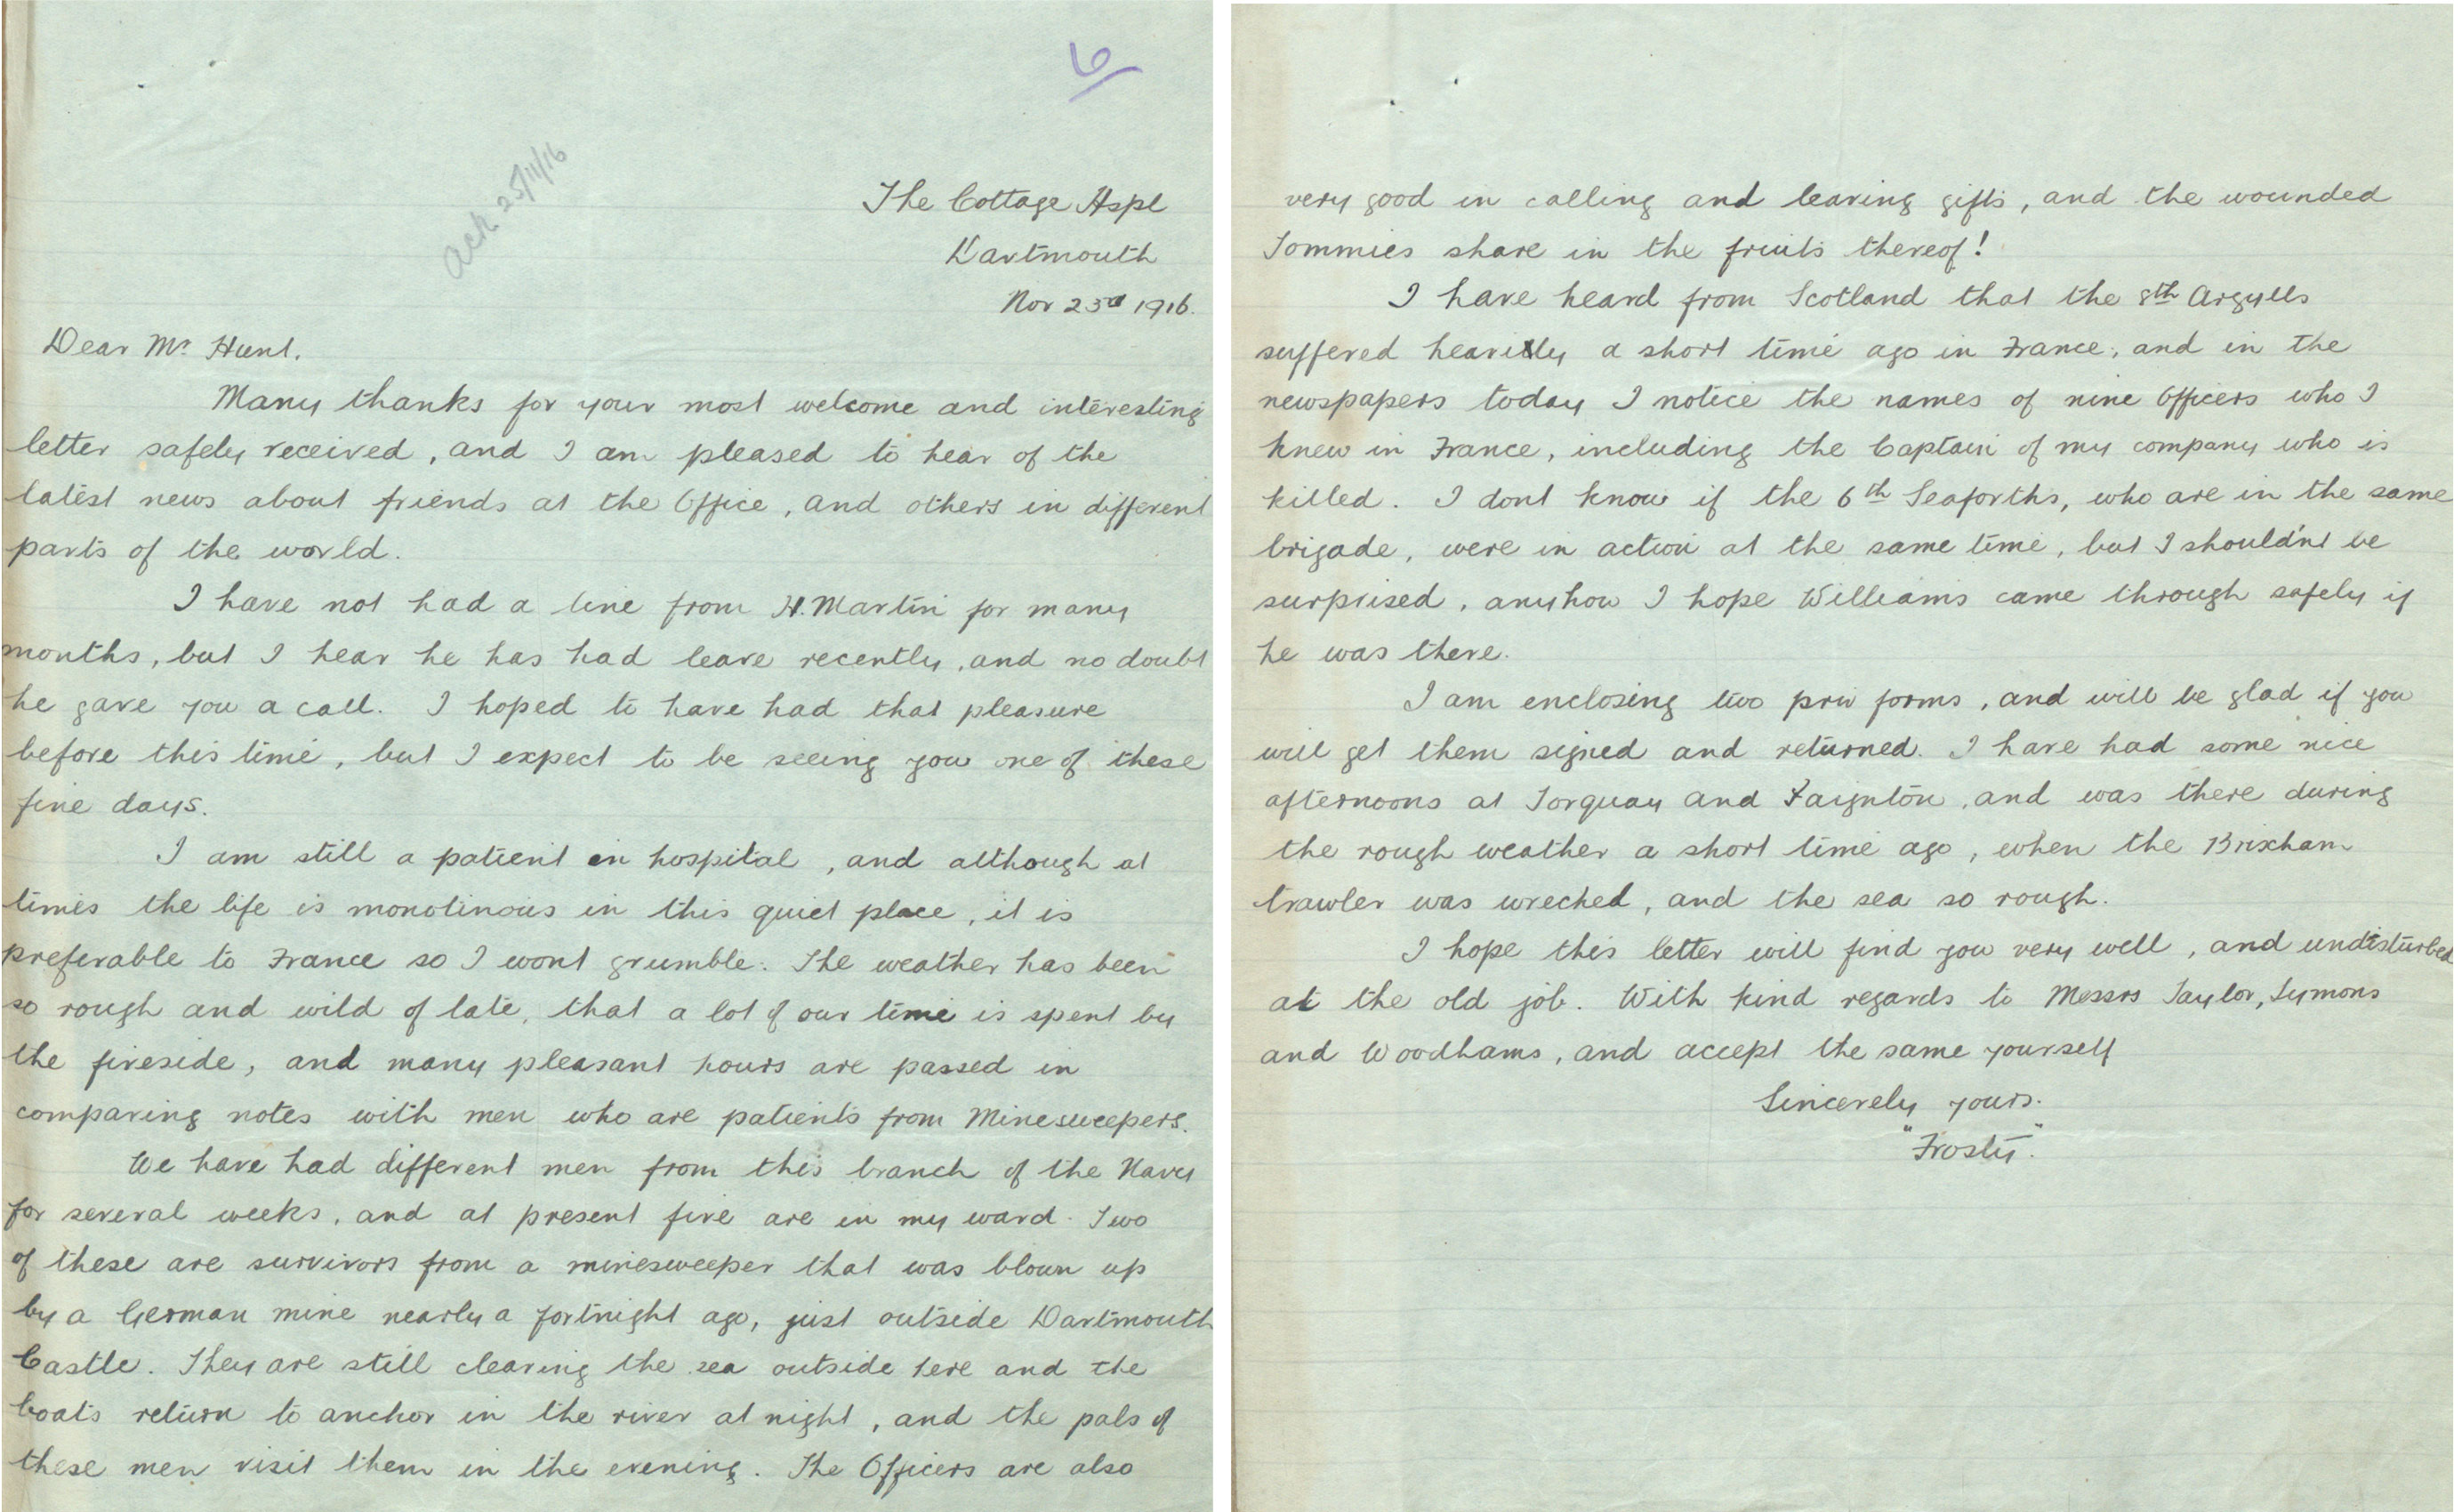 6
ack 25/11/16
The Cottage Hspl
Dartmouth
Nov 23rd 1916.
Dear Mr Hunt.
Many thanks for your most welcome and interesting
letter safely received, and I am pleased to hear of the
latest news about friends at the Office, and others in different
parts of the world.
I have not had a line from H. Martin for many
months, but I hear he has had leave recently, and no doubt
he gave you a call. I hoped to have had that pleasure
before this time, but I expect to be seeing you one of these
fine days.
I am still a patient in hospital, and although at
times the life is monotinous in this quiet place, it is
preferable to France so I wont grumble. The weather has been
so rough and wild of late, that a lot of our time is spent by
the fireside, and many pleasant hours are passed in
comparing notes with men who are patients from Minesweepers.
We have had different men from this branch of the Navy
for several weeks, and at present five are in my ward. Two
of these are survivors from a minesweeper that was blown up
by a German mine nearly a fortnight ago, just outside Dartmouth
Castle. They are still clearing the sea outside here and the
boats return to anchor in the river at night, and the pals of
these men visit them in the evening. The Officers are also
very good in calling and leaving gifts, and the wounded
Tommies share in the fruits thereof!
I have heard from Scotland that the 8th Argylls
suffered heavily a short time ago in France, and in the
newspapers today I notice the names of nine Officers who I
knew in France, including the Captain of my company who is
killed. I dont know if the 6th Seaforths, who are in the same
brigade, were in action at the same time, but I should'nt be
surprised, anyhow I hope Williams came through safely if
he was there.
I am enclosing two priv forms, and will be glad if you
will get them signed and returned. I have had some nice
afternoons at Torquay and Paignton, and was there during
the rough weather a short time ago, when the Brixham
trawler was wrecked, and the sea so rough.
I hope this letter will find you very well, and undisturbed
at the old job. With kind regards to Messrs Taylor, Symons
and Woodhams, and accept the same yourself
Sincerely yours.
"Frosty".